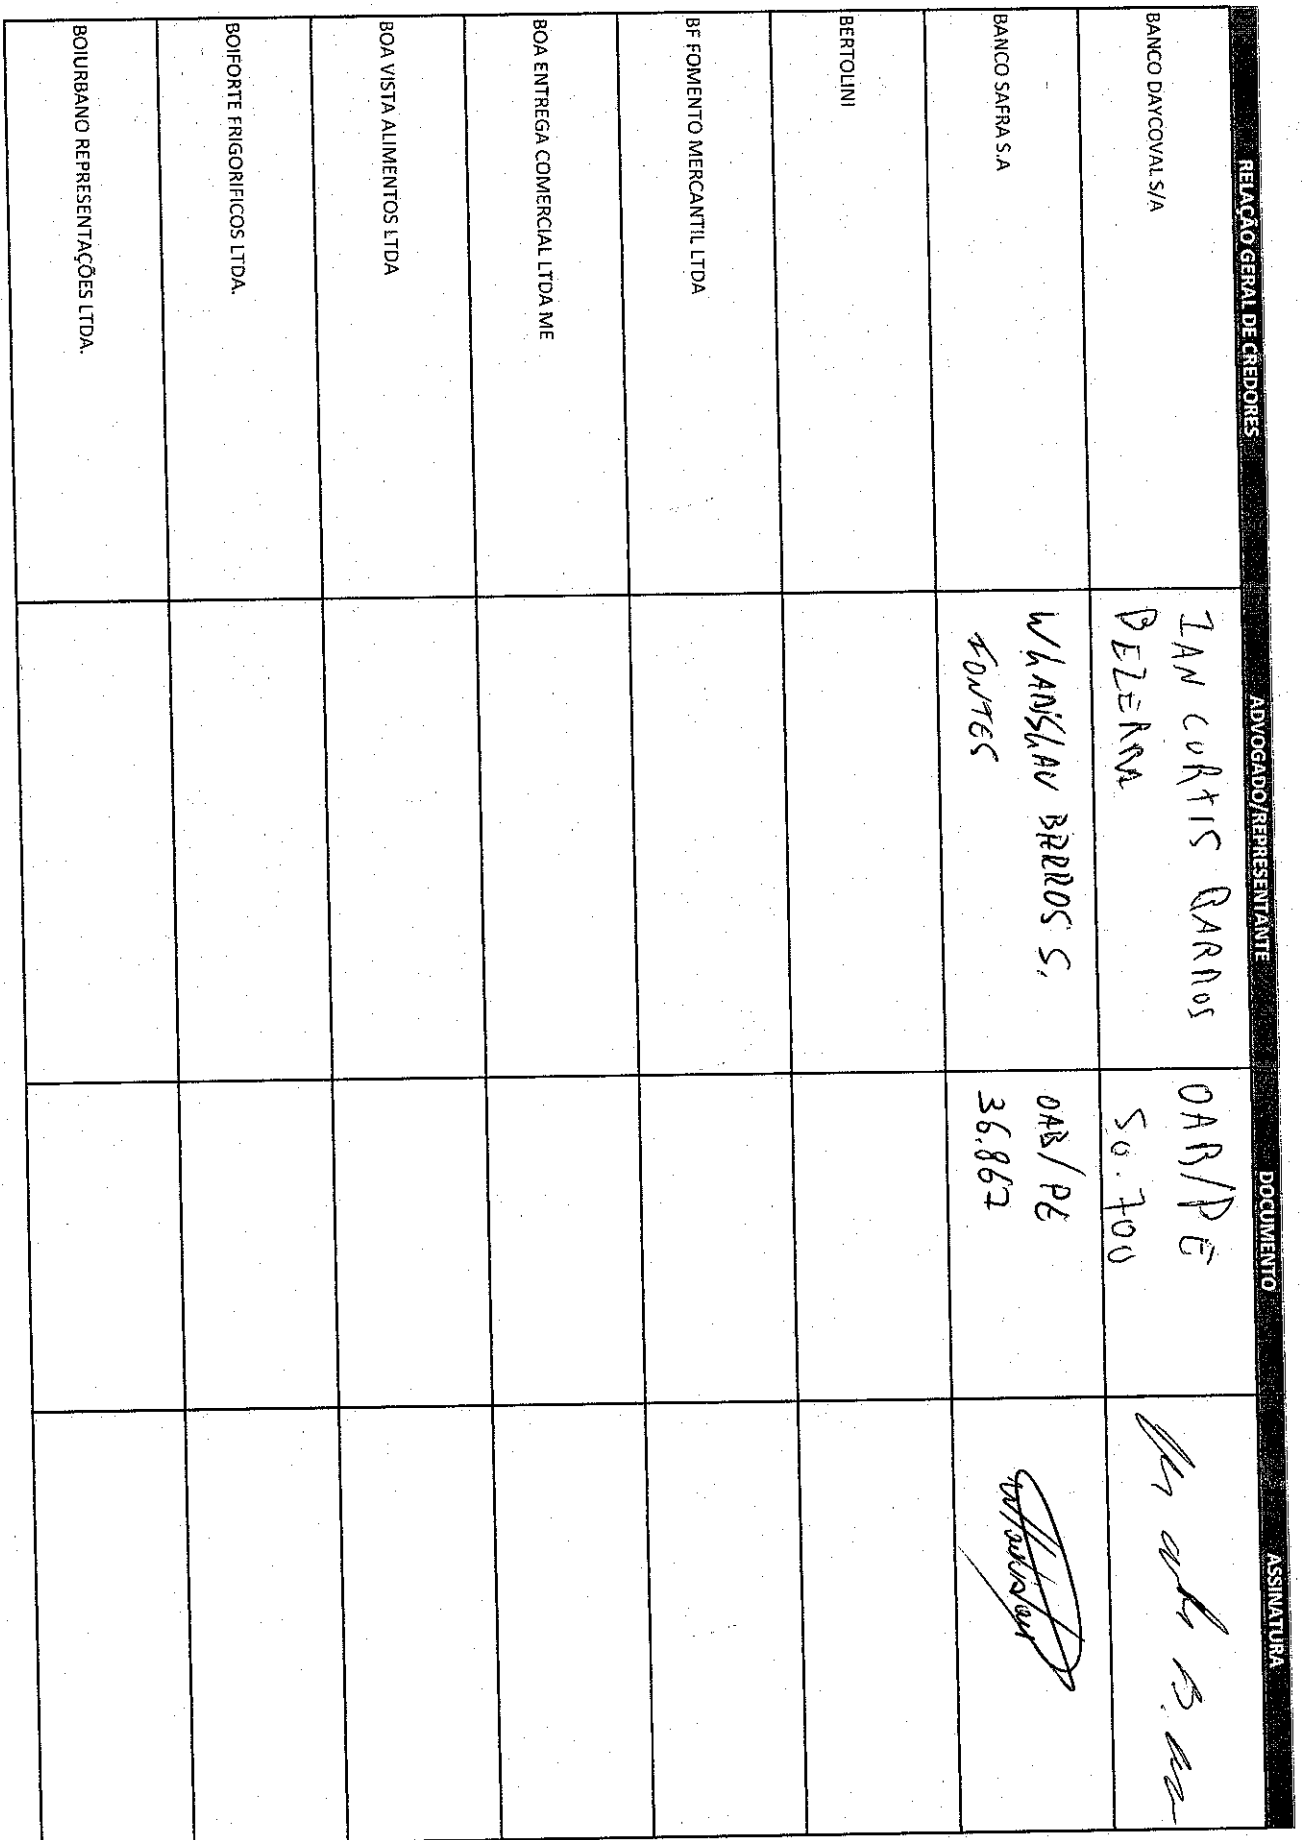 RELAÇÃO GERAL DE CREDORES ADVOGADO/REPRESENTANTE DOCUMENTO ASSINATURA
BANCO DAYCOVAL S/A
IAN CURTIS BARROS
BEZERRA
OAB/PE
50.700
BANCO SAFRA S.A
WLANISLAU BARROS S.
FONTES
OAB/PE
36.867
BERTOLINI
BF FOMENTO MERCANTIL LTDA
BOA ENTREGA COMERCIAL LTDA ME
BOA VISTA ALIMENTOS LTDA
BOIFORTE FRIGORIFICOS LTDA.
BOIURBANO REPRESENTAÇÕES LTDA.